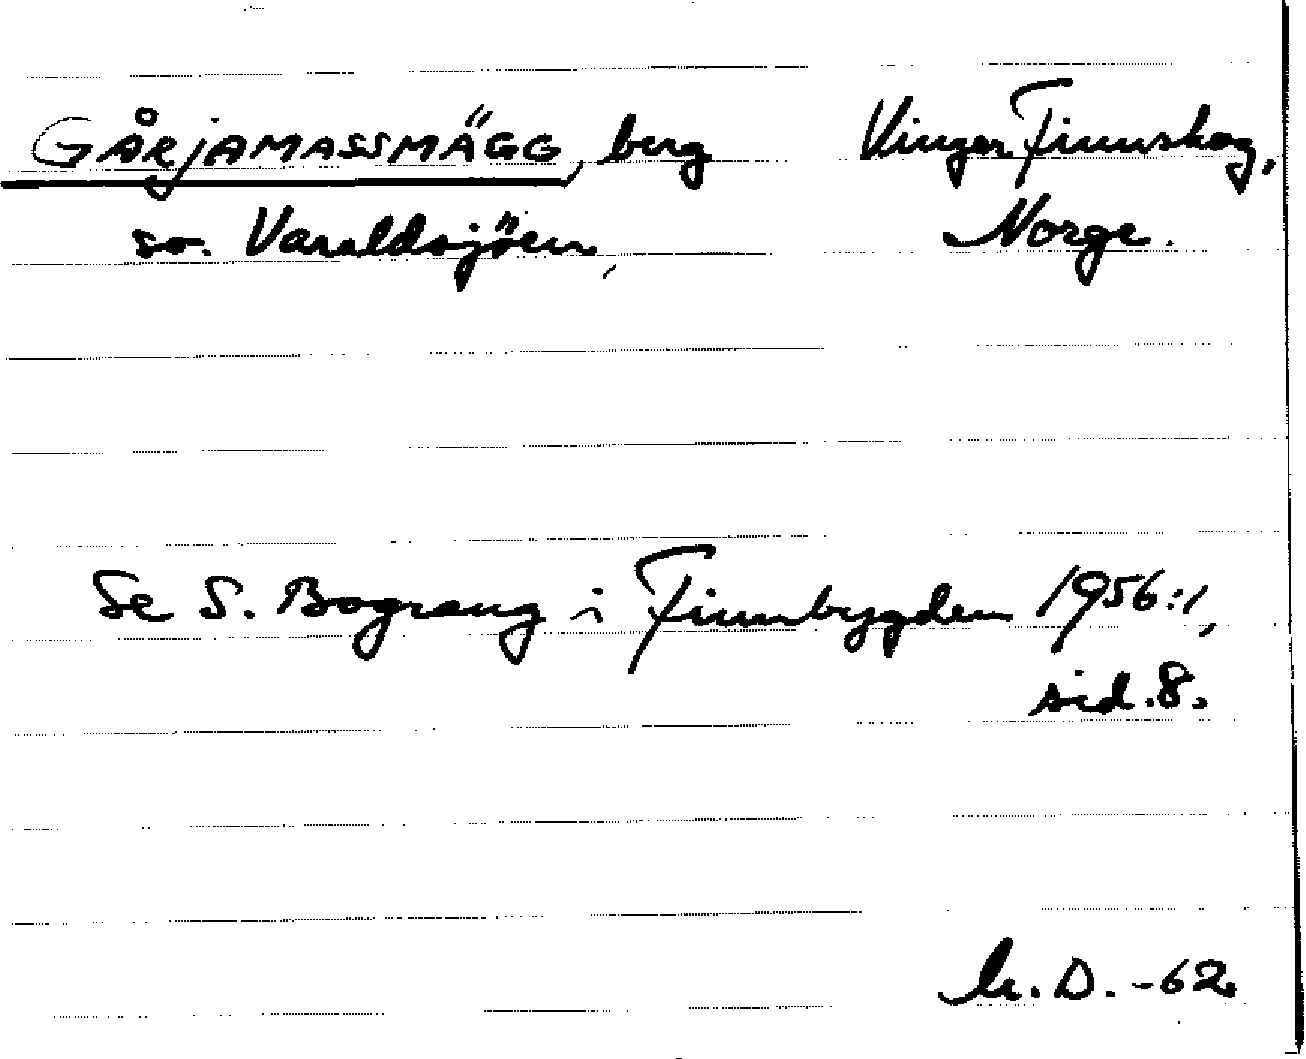 GÅRJAMASSMÄGG, berg Vinger Finnskog,
so. Varaldsjöen, Norge.
Se S. Bograng i Finnbygden 1956:1,
sid. 8.
D. -62